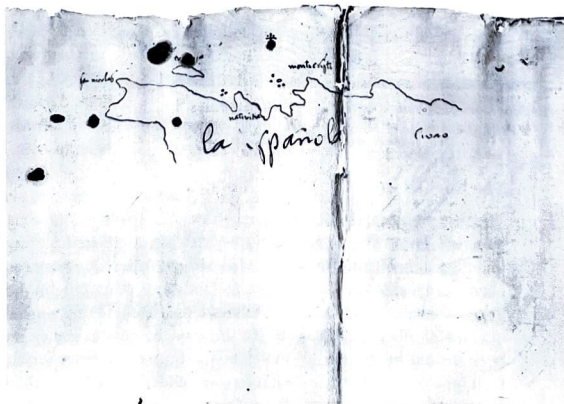 san nicolas
monte cristi
natiuidad
la española
Ciuao